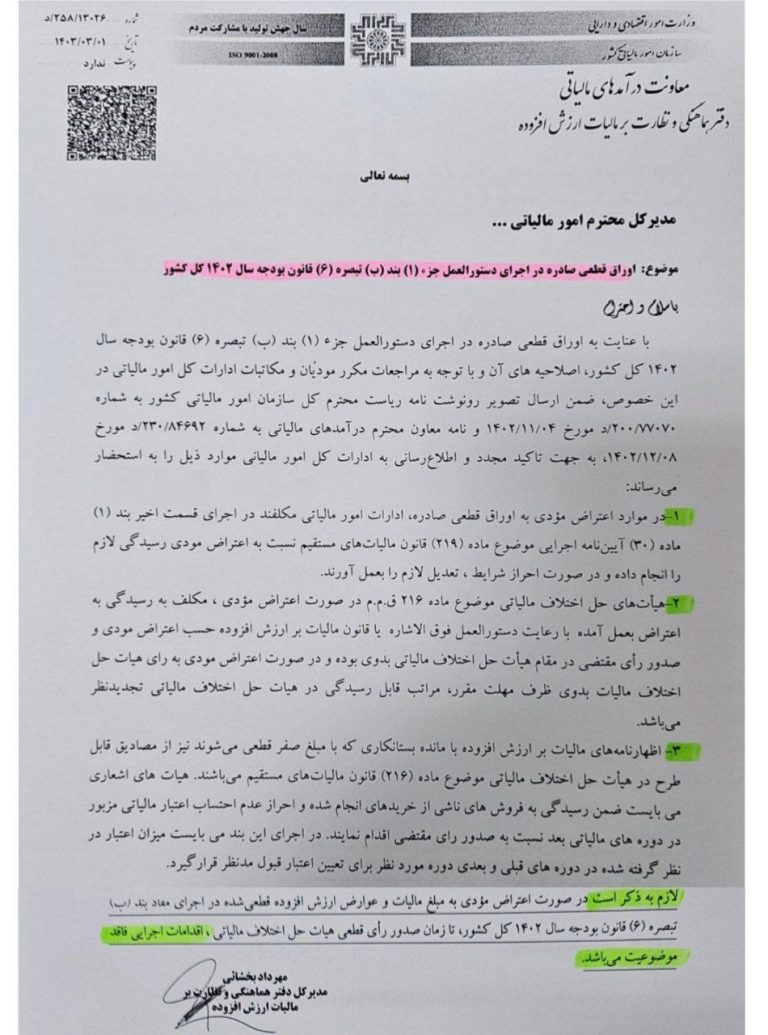 وزارت امور اقتصادی و دارایی
سازمان امور مالیاتی کشور
سال جهش تولید با مشارکت مردم
ISO 9001-2008
شماره ۲۵۸/۱۳۰۲۶/د
تاریخ ۱۴۰۳/۰۳/۰۱
پیوست ندارد
معاونت درآمدهای مالیاتی
دفتر هماهنگی و نظارت بر مالیات ارزش افزوده
بسمه تعالی
مدیرکل محترم امور مالیاتی ...
موضوع: اوراق قطعی صادره در اجرای دستورالعمل جزء (۱) بند (ب) تبصره (۶) قانون بودجه سال ۱۴۰۲ کل کشور
باسلام و احترام
با عنایت به اوراق قطعی صادره در اجرای دستورالعمل جزء (۱) بند (ب) تبصره (۶) قانون بودجه سال
۱۴۰۲ کل کشور، اصلاحیه های آن و با توجه به مراجعات مکرر مودیان و مکاتبات ادارات کل امور مالیاتی در
این خصوص، ضمن ارسال تصویر رونوشت نامه ریاست محترم کل سازمان امور مالیاتی کشور به شماره
۲۰۰/۷۷۰۷۰/د مورخ ۱۴۰۲/۱۱/۰۴ و نامه معاون محترم درآمدهای مالیاتی به شماره ۲۳۰/۸۴۶۹۲/د مورخ
۱۴۰۲/۱۲/۰۸، به جهت تاکید مجدد و اطلاع‌رسانی به ادارات کل امور مالیاتی موارد ذیل را به استحضار
می‌رساند:
۱-در موارد اعتراض مؤدی به اوراق قطعی صادره، ادارات امور مالیاتی مکلفند در اجرای قسمت اخیر بند (۱)
ماده (۳۰) آیین‌نامه اجرایی موضوع ماده (۲۱۹) قانون مالیات‌های مستقیم نسبت به اعتراض مودی رسیدگی لازم
را انجام داده و در صورت احراز شرایط ، تعدیل لازم را بعمل آورند.
۲-هیأت‌های حل اختلاف مالیاتی موضوع ماده ۲۱۶ ق.م.م در صورت اعتراض مؤدی ، مکلف به رسیدگی به
اعتراض بعمل آمده با رعایت دستورالعمل فوق الاشاره یا قانون مالیات بر ارزش افزوده حسب اعتراض مودی و
صدور رأی مقتضی در مقام هیأت حل اختلاف مالیاتی بدوی بوده و در صورت اعتراض مودی به رای هیات حل
اختلاف مالیات بدوی ظرف مهلت مقرر، مراتب قابل رسیدگی در هیات حل اختلاف مالیاتی تجدیدنظر
می‌باشد.
۳- اظهارنامه‌های مالیات بر ارزش افزوده با مانده بستانکاری که با مبلغ صفر قطعی می‌شوند نیز از مصادیق قابل
طرح در هیأت حل اختلاف مالیاتی موضوع ماده (۲۱۶) قانون مالیات‌های مستقیم می‌باشند. هیات های اشعاری
می بایست ضمن رسیدگی به فروش های ناشی از خریدهای انجام شده و احراز عدم احتساب اعتبار مالیاتی مزبور
در دوره های مالیاتی بعد نسبت به صدور رای مقتضی اقدام نمایند. در اجرای این بند می بایست میزان اعتبار در
نظر گرفته شده در دوره های قبلی و بعدی دوره مورد نظر برای تعیین اعتبار قبول مدنظر قرارگیرد.
لازم به ذکر است در صورت اعتراض مؤدی به مبلغ مالیات و عوارض ارزش افزوده قطعی‌شده در اجرای مفاد بند (ب)
تبصره (۶) قانون بودجه سال ۱۴۰۲ کل کشور، تا زمان صدور رأی قطعی هیات حل اختلاف مالیاتی ، اقدامات اجرایی فاقد
موضوعیت می‌باشد.
مهرداد بخشائی
مدیرکل دفتر هماهنگی و نظارت بر
مالیات ارزش افزوده